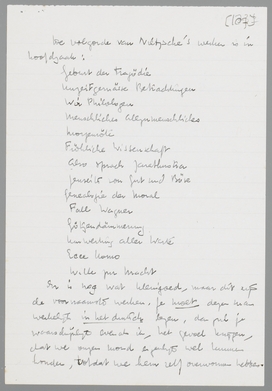 De volgorde van Nietzsche's werken is in
hoofdzaak:
Geburt der Tragödie
Unzeitgemässe Betrachtungen
Wir Philologen
Menschliches Allzumenschliches
Morgenröte
Fröhliche Wissenschaft
Also sprach Zarathustra
Jenseits von Gut und Böse
Genealogie der Moral
Fall Wagner
Götzendämmerung
Umwertung aller Werte
Ecce Homo
Wille zur Macht
Er is nog wat kleingoed, maar dit zijn
de voornaamste werken. Je moet, deze man
werkelijk in het duitsch lezen, dan zul je
waarschijnlijk evenals ik, het gevoel krijgen,
dat we onzen mond eigenlijk wel kunnen
houden, totdat we hem zelf overwonnen hebben.